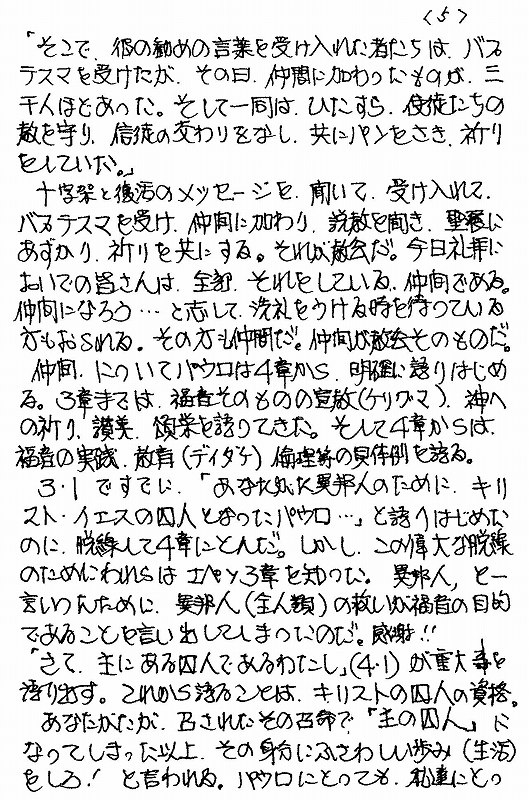 (5)
「そこで、彼の勧めの言葉を受け入れた者たちは、バプ
テスマを受けたが、その日、仲間に加わったものが、三
千人ほどあった。そして一同は、ひたすら、使徒たちの
教を守り、信徒の交わりをなし、共にパンをさき、祈り
をしていた。」
十字架と復活のメッセージを、聞いて、受け入れて、
バプテスマを受け、仲間に加わり、説教を聞き、聖餐に
あずかり、祈りを共にする。それが教会だ。今日礼拝に
おいでの皆さんは、全部、それをしている、仲間である。
仲間になろう…と志して、洗礼をうける時を待っている
方もおられる。その方も仲間だ。仲間が教会そのものだ。
仲間、についてパウロは4章から、明確に語りはじめ
る。3章までは、福音そのものの宣教(ケリグマ)、神へ
の祈り、讃美、頌栄を語りてきた。そして4章からは、
福音の実践、教育(ディダケ)倫理等の具体例を語る。
3・1ですでに、「あなたがた異邦人のために、キリ
スト・イエスの囚人となったパウロ…」と語りはじめた
のに、脱線して4章にとんだ。しかし、この偉大な脱線
のためにわれらはエペソ3章を知った。異邦人、と一
言いったために、異邦人(全人類)の救いが福音の目的
であることを言い出してしまったのだ。感謝!!
「さて、主にある囚人であるわたし」(4・1)が重大事を
語り出す。これから語ることは、キリストの囚人の資格。
あなたがたが、召されたその召命で「主の囚人」に
なってしまった以上、その身分にふさわしい歩み(生活)
をしろ!と言われる。パウロにとっても、私達にとっ